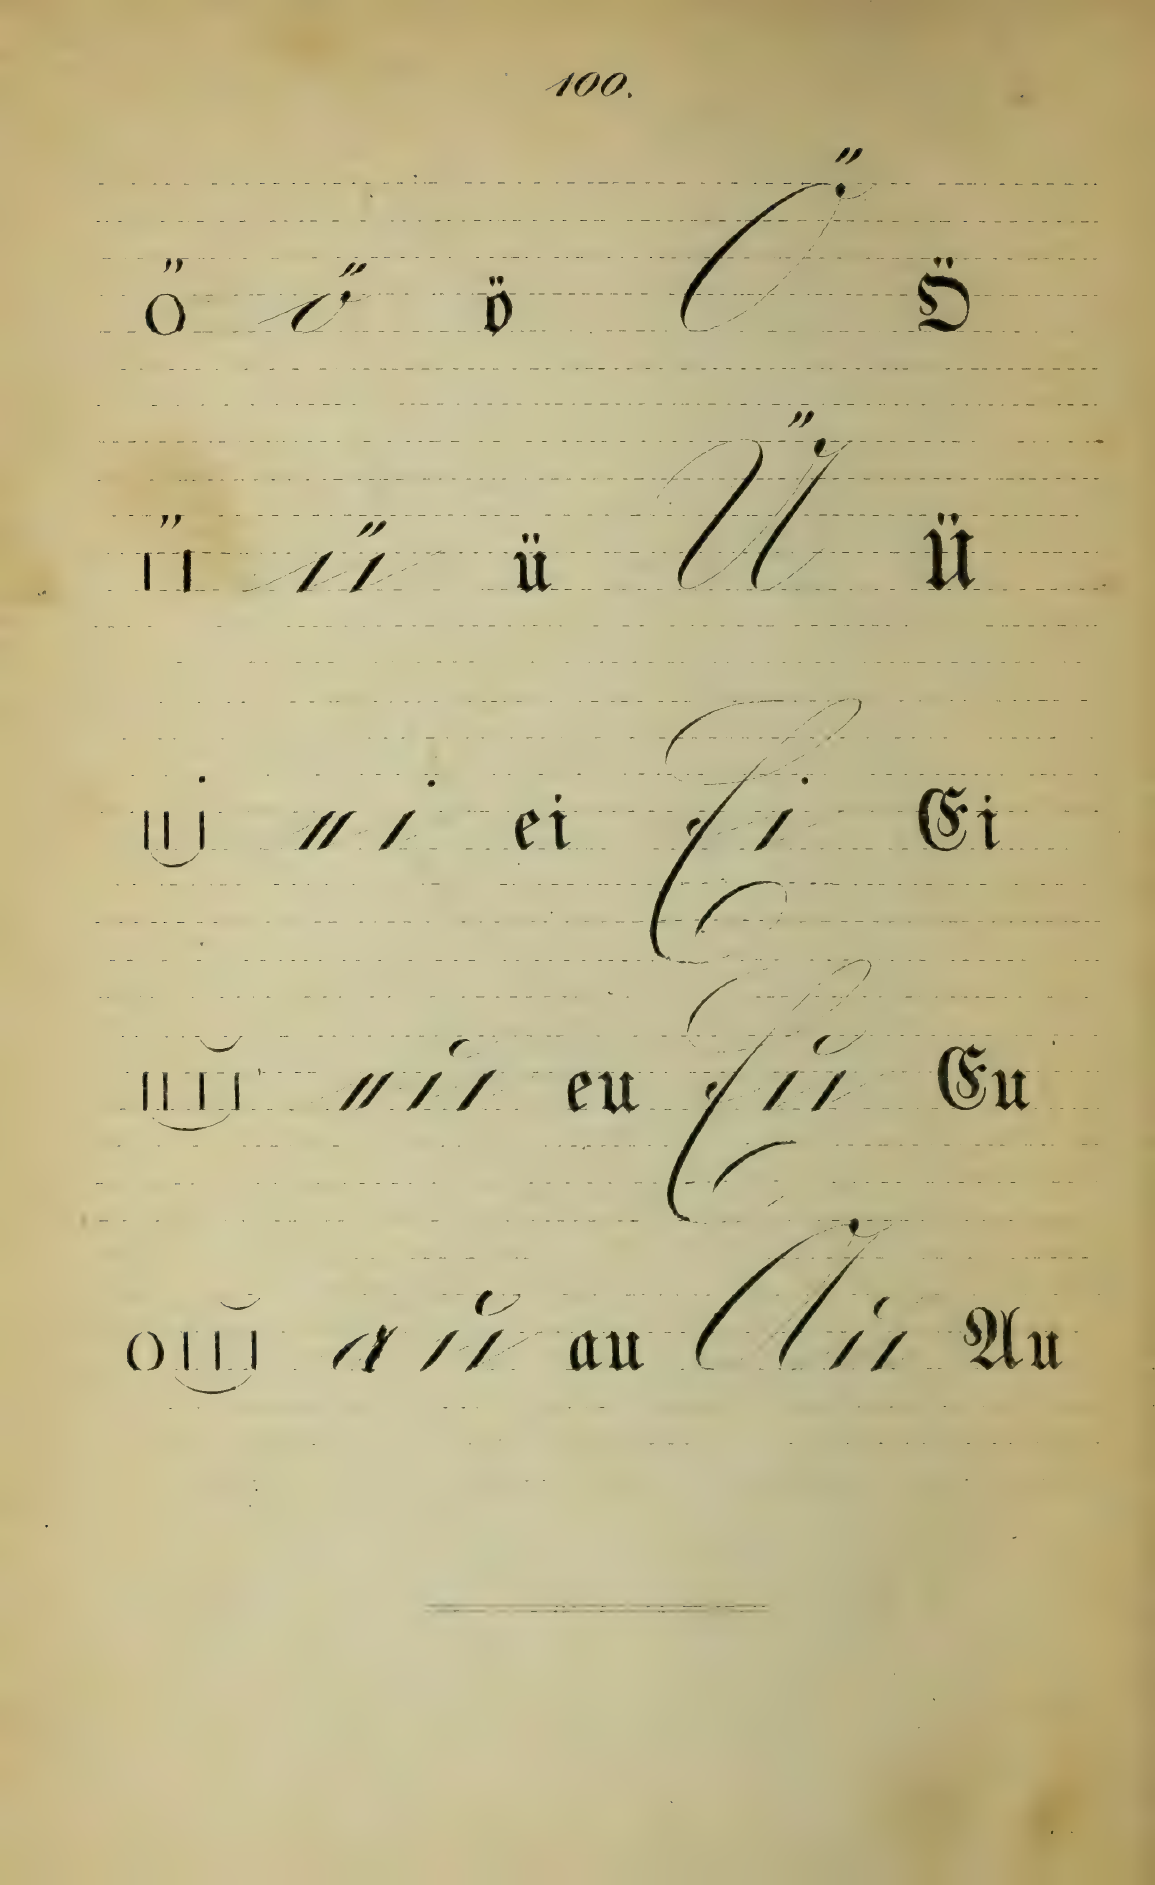 100.
ö ö ö Ö Ö
ü ü ü Ü Ü
ei ei ei Ei Ei
eu eu eu Eu Eu
au au au Au Au